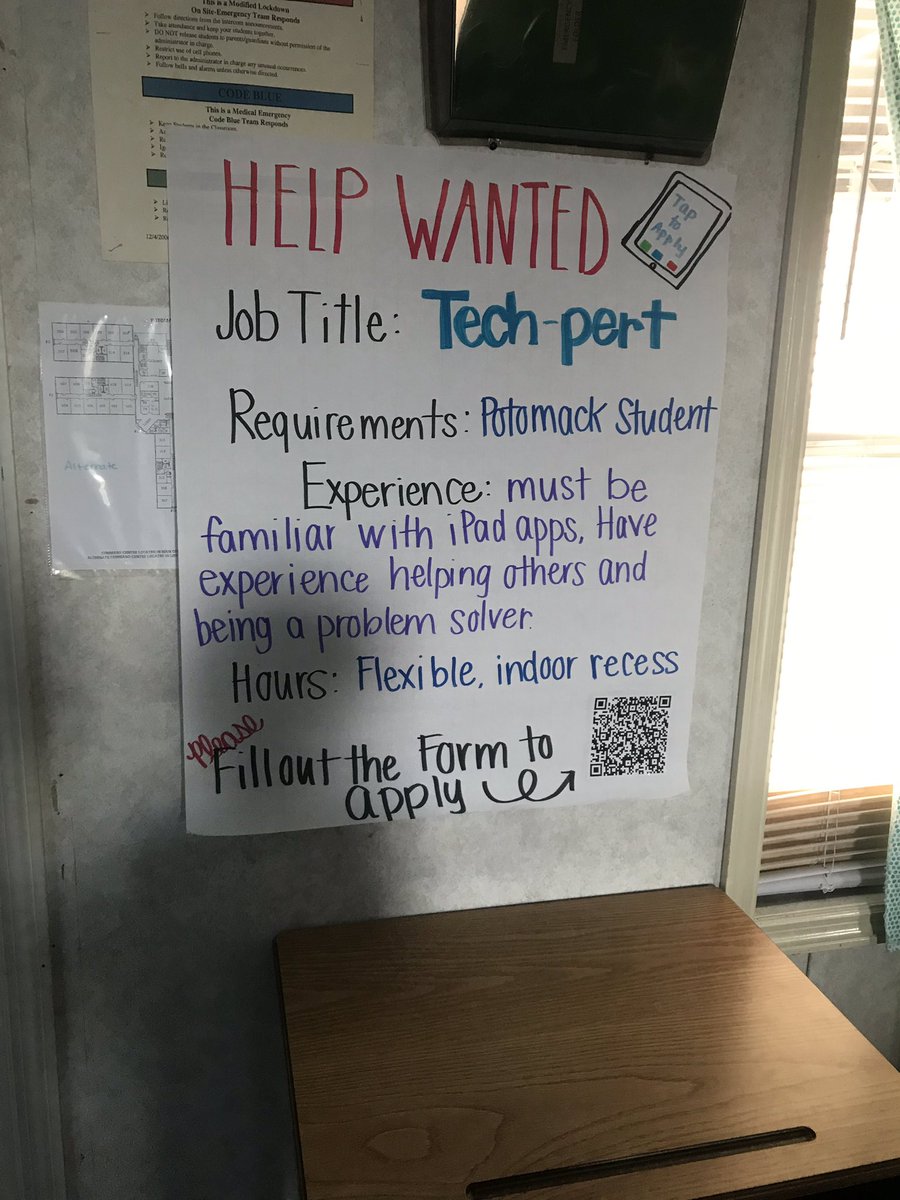 This is a Modified Lockdown
On Site-Emergency Team Responds
➢ Follow directions from the intercom announcements.
➢ Take attendance and keep your students together.
➢ DO NOT release students to parents/guardians without permission of the
administrator in charge.
➢ Restrict use of cell phones.
➢ Report to the administrator in charge any unusual occurrences.
➢ Follow bells and alarms unless otherwise directed.
CODE BLUE
This is a Medical Emergency
Code Blue Team Responds
HELP WANTED
Tap
to
Apply
Job Title: Tech-pert
Requirements: Potomack Student
Experience: must be
familiar with iPad apps, Have
experience helping others and
being a problem solver.
Hours: Flexible, indoor recess
please
Fill out the Form to
apply
Alternate